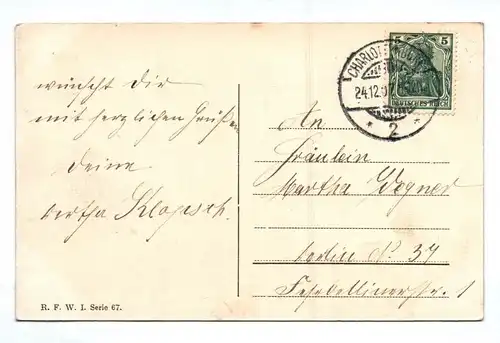 wünscht Dir
mit herzlichen Grüßen
Deine
Bertha Klopsch.
An
Fräulein
Martha Wegner
Berlin No 37
Fehrbellinerstr. 1
R. F. W. I. Serie 67.
5 5
DEUTSCHES REICH
CHARLOTTENBURG
24.12.0
* 2 *